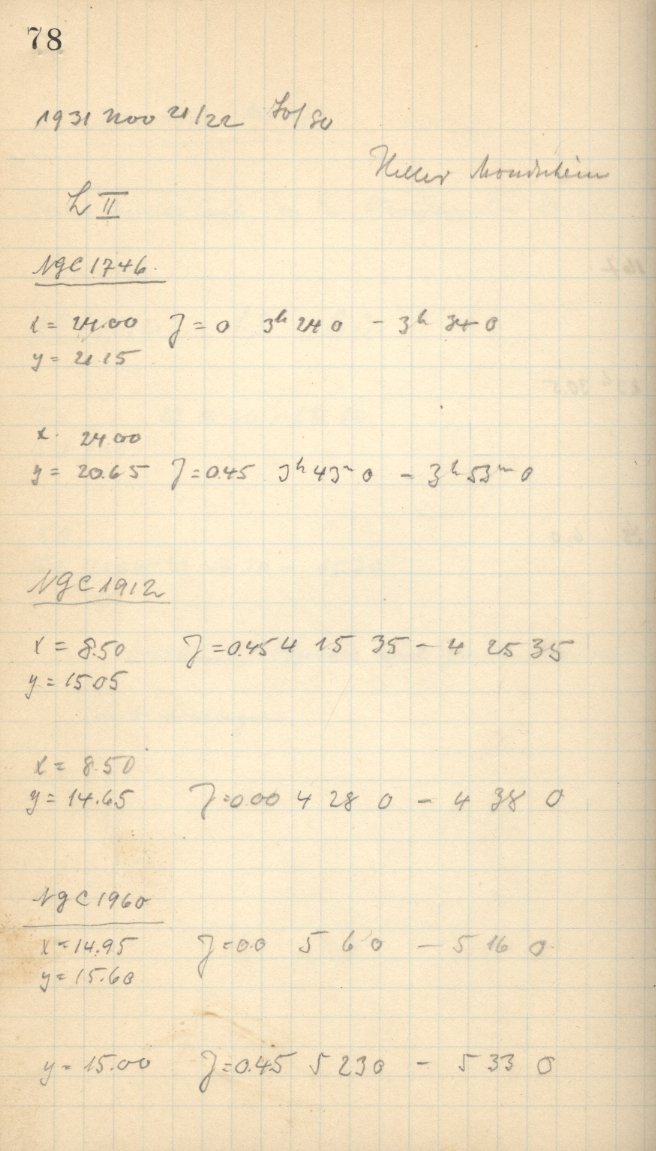 78
1931 Nov 21/22 So/So
Heller Mondschein
L II
NGC 1746.
x = 24.00 J = 0 3h 24 0 - 3h 34 0
y = 21.15
x. 24.00
y = 20.65 J = 0.45 3h 43m 0 - 3h 53m 0
NGC 1912
x = 8.50 J = 0.45 4 15 35 - 4 25 35
y = 15.05
x = 8.50
y = 14.65 J = 0.00 4 28 0 - 4 38 0
NGC 1960
x = 14.95 J = 0.0 5 6 0 - 5 16 0
y = 15.60
y = 15.00 J = 0.45 5 23 0 - 5 33 0